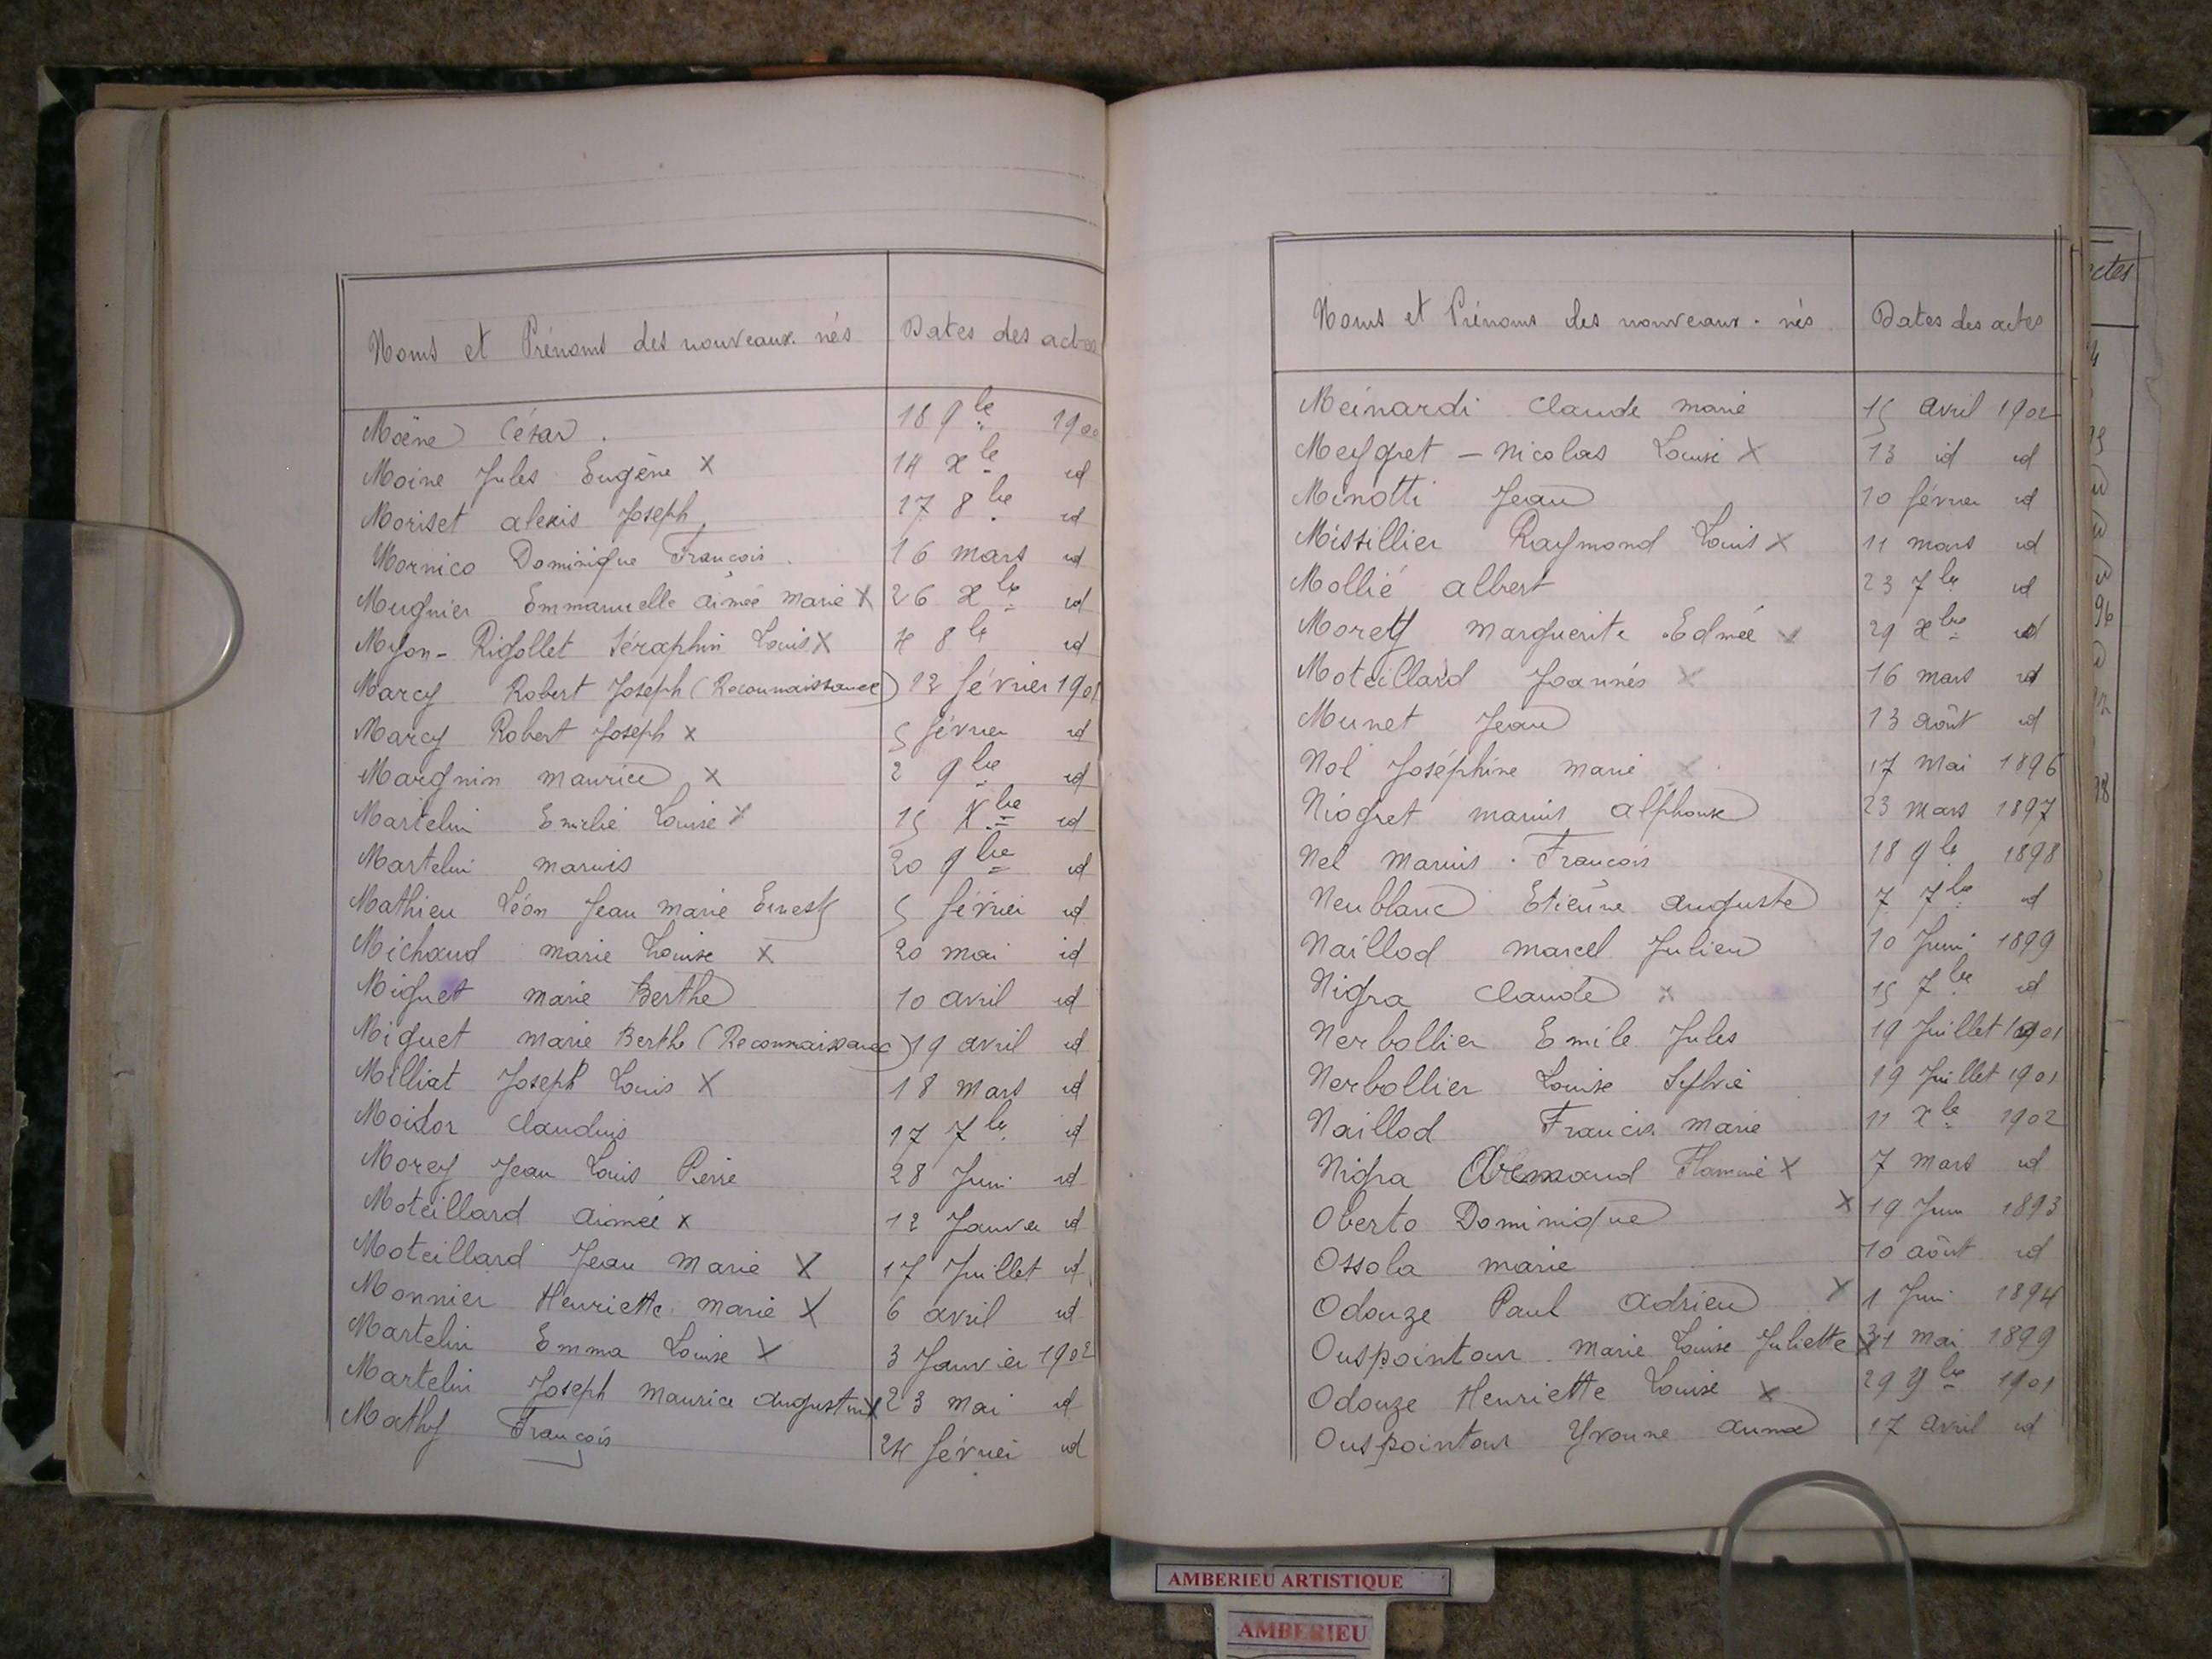 Noms et Prénoms des nouveaux-nés Dates des actes
Moëne César. 18 9bre 1900
Moine Jules Eugène X 14 xbre id
Moriset alexis Joseph 17 8bre id
Mornico Dominique François. 16 mars id
Mugnier Emmanuelle aimée marie X 26 xbre id
Myon-Rigollet Séraphin Louis X 4 8bre id
Marcy Robert Joseph (Reconnaissance) 12 février 1901
Marcy Robert Joseph X 5 février id
Margnin maurice X 2 9bre id
Martelin Emilie Louise X 15 Xbre id
Martelin marius 20 9bre id
Mathieu Léon Jean marie Ernest 5 février id
Michaud marie Louise X 20 mai id
Miguet marie Berthe 10 avril id
Miguet marie Berthe (Reconnaissance) 19 avril id
Milliat Joseph Louis X 18 mars id
Moidor claudius 17 7bre id
Morey Jean Louis Pierre 28 Juin id
Moteillard aimée X 12 Janvier id
Moteillard Jean marie X 17 Juillet id
Monnier Henriette marie X 6 avril id
Martelin Emma Louise X 3 Janvier 1902
Martelin Joseph maurice augustin X 23 mai id
Mathy François 24 février id
Noms et Prénoms des nouveaux-nés Dates des actes
Meinardi claude marie 15 avril 1902
Meygret-nicolas Louise X 13 id id
Minotti Jean 10 février id
Missillier Raymond Louis X 11 mars id
Mollié albert 23 7bre id
Morety marguerite Edmée X 29 xbre id
Moteillard Joannès X 16 mars id
Munet Jean 13 août id
Nol Joséphine marie X 17 mai 1896
Niogret marius alphonse 23 mars 1897
Nel marius. François 18 9bre 1898
Neublanc Etienne auguste 7 7bre id
Naillod marcel Julien 10 Juin 1899
Nigra claude X 15 7bre id
Nerbollier Emile Jules 19 Juillet 1901
Nerbollier Louise Sylvie 19 Juillet 1901
Naillod Francis marie 11 xbre 1902
Nigra Armand Flaminie X 7 mars id
Oberto Dominique X 19 Juin 1893
Ossola marie 10 août id
Odouze Paul adrien X 1 Juin 1894
Ouspointour marie Louise Juliette X 31 mai 1899
Odouze Henriette Louise X 29 9bre 1901
Ouspointour Yvonne anna 17 avril id
AMBERIEU ARTISTIQUE
AMBERIEU